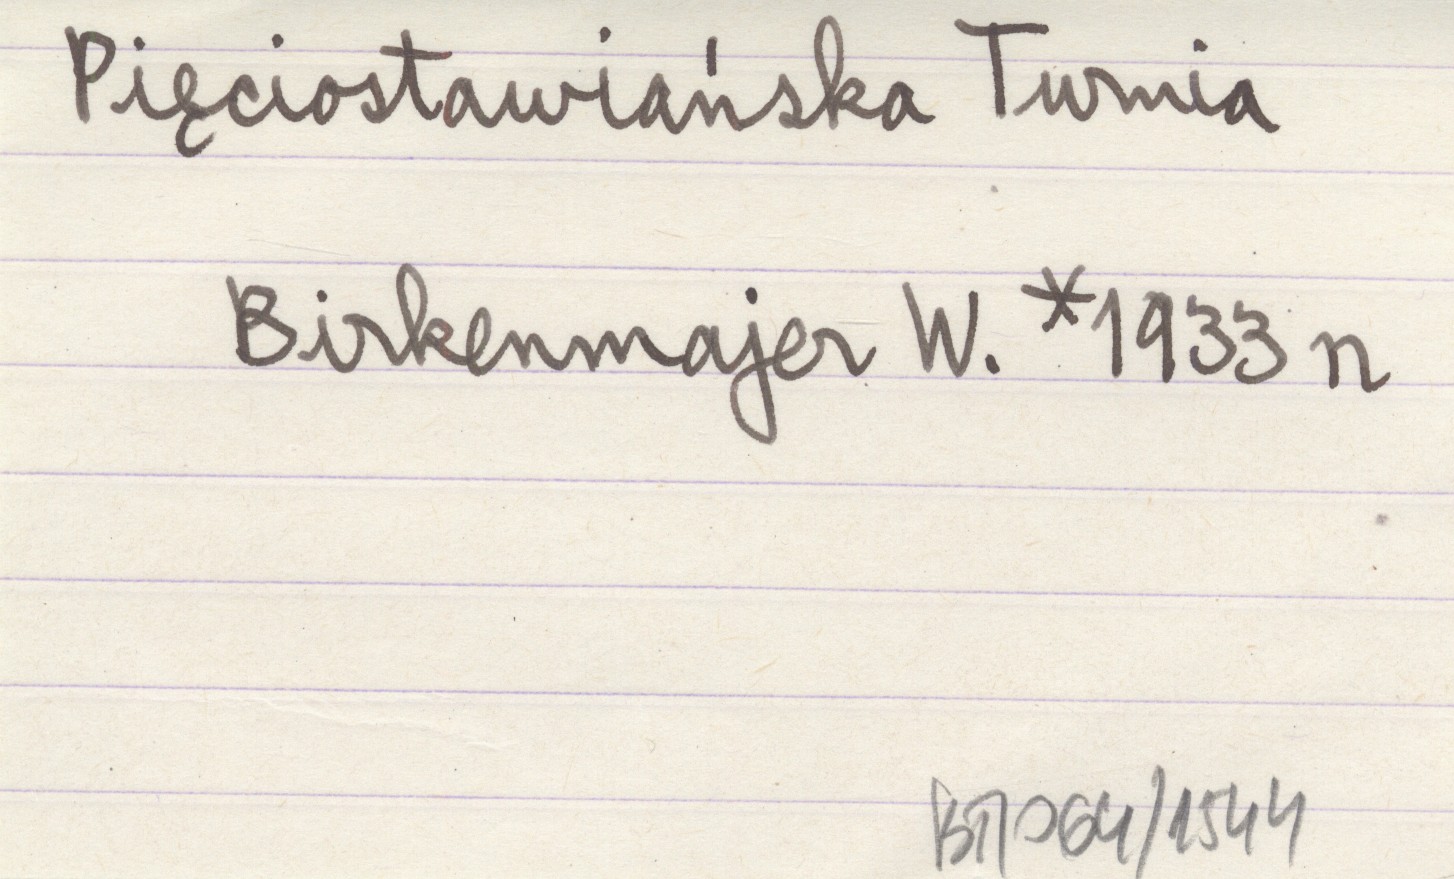 Pięciostawiańska Turnia
Birkenmajer W. *1933 n